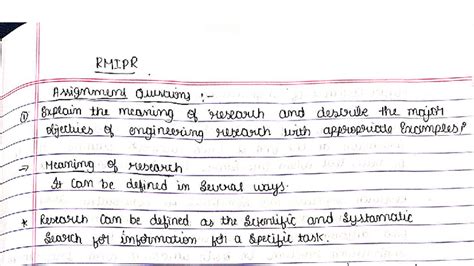 RMIPR
Assignment Questions :-
① Explain the meaning of research and describe the major
objectives of engineering research with appropriate Examples?
→ Meaning of research
It can be defined in several ways.
* Research can be defined as the Scientific and Systamatic
Search for information for a Specific task.